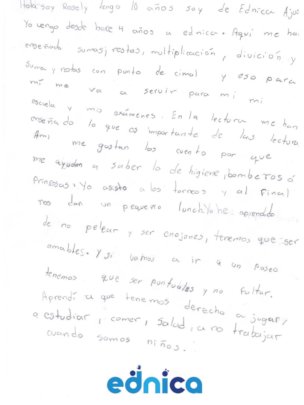 Hola: soy Rosely tengo 10 años soy de Ednica Ajus
Yo vengo desde hace 4 años a ednica. Aqui me han
enseñado sumas, restas, multiplicación, divicion y
suma y restas con punto de cimal y eso para
mi me va a servir para mi mi
escuela y mis exámenes. En la lectura me han
enseñado lo que es importante de las lectura
Ami me gustan los cuento por que
me ayudan a saber lo de higiene, bomberos o
princesas. Yo asisto a los torneos y al final
nos dan un pequeño lunch. Yo he aprendido
de no pelear y ser enojones, tenemos que ser
amables. Y si vamos a ir a un paseo
tenemos que ser puntuales y no faltar.
Aprendi a que tenemos derecho a jugar,
a estudiar, comer, salud, a no trabajar
cuando somos niños.
ednica